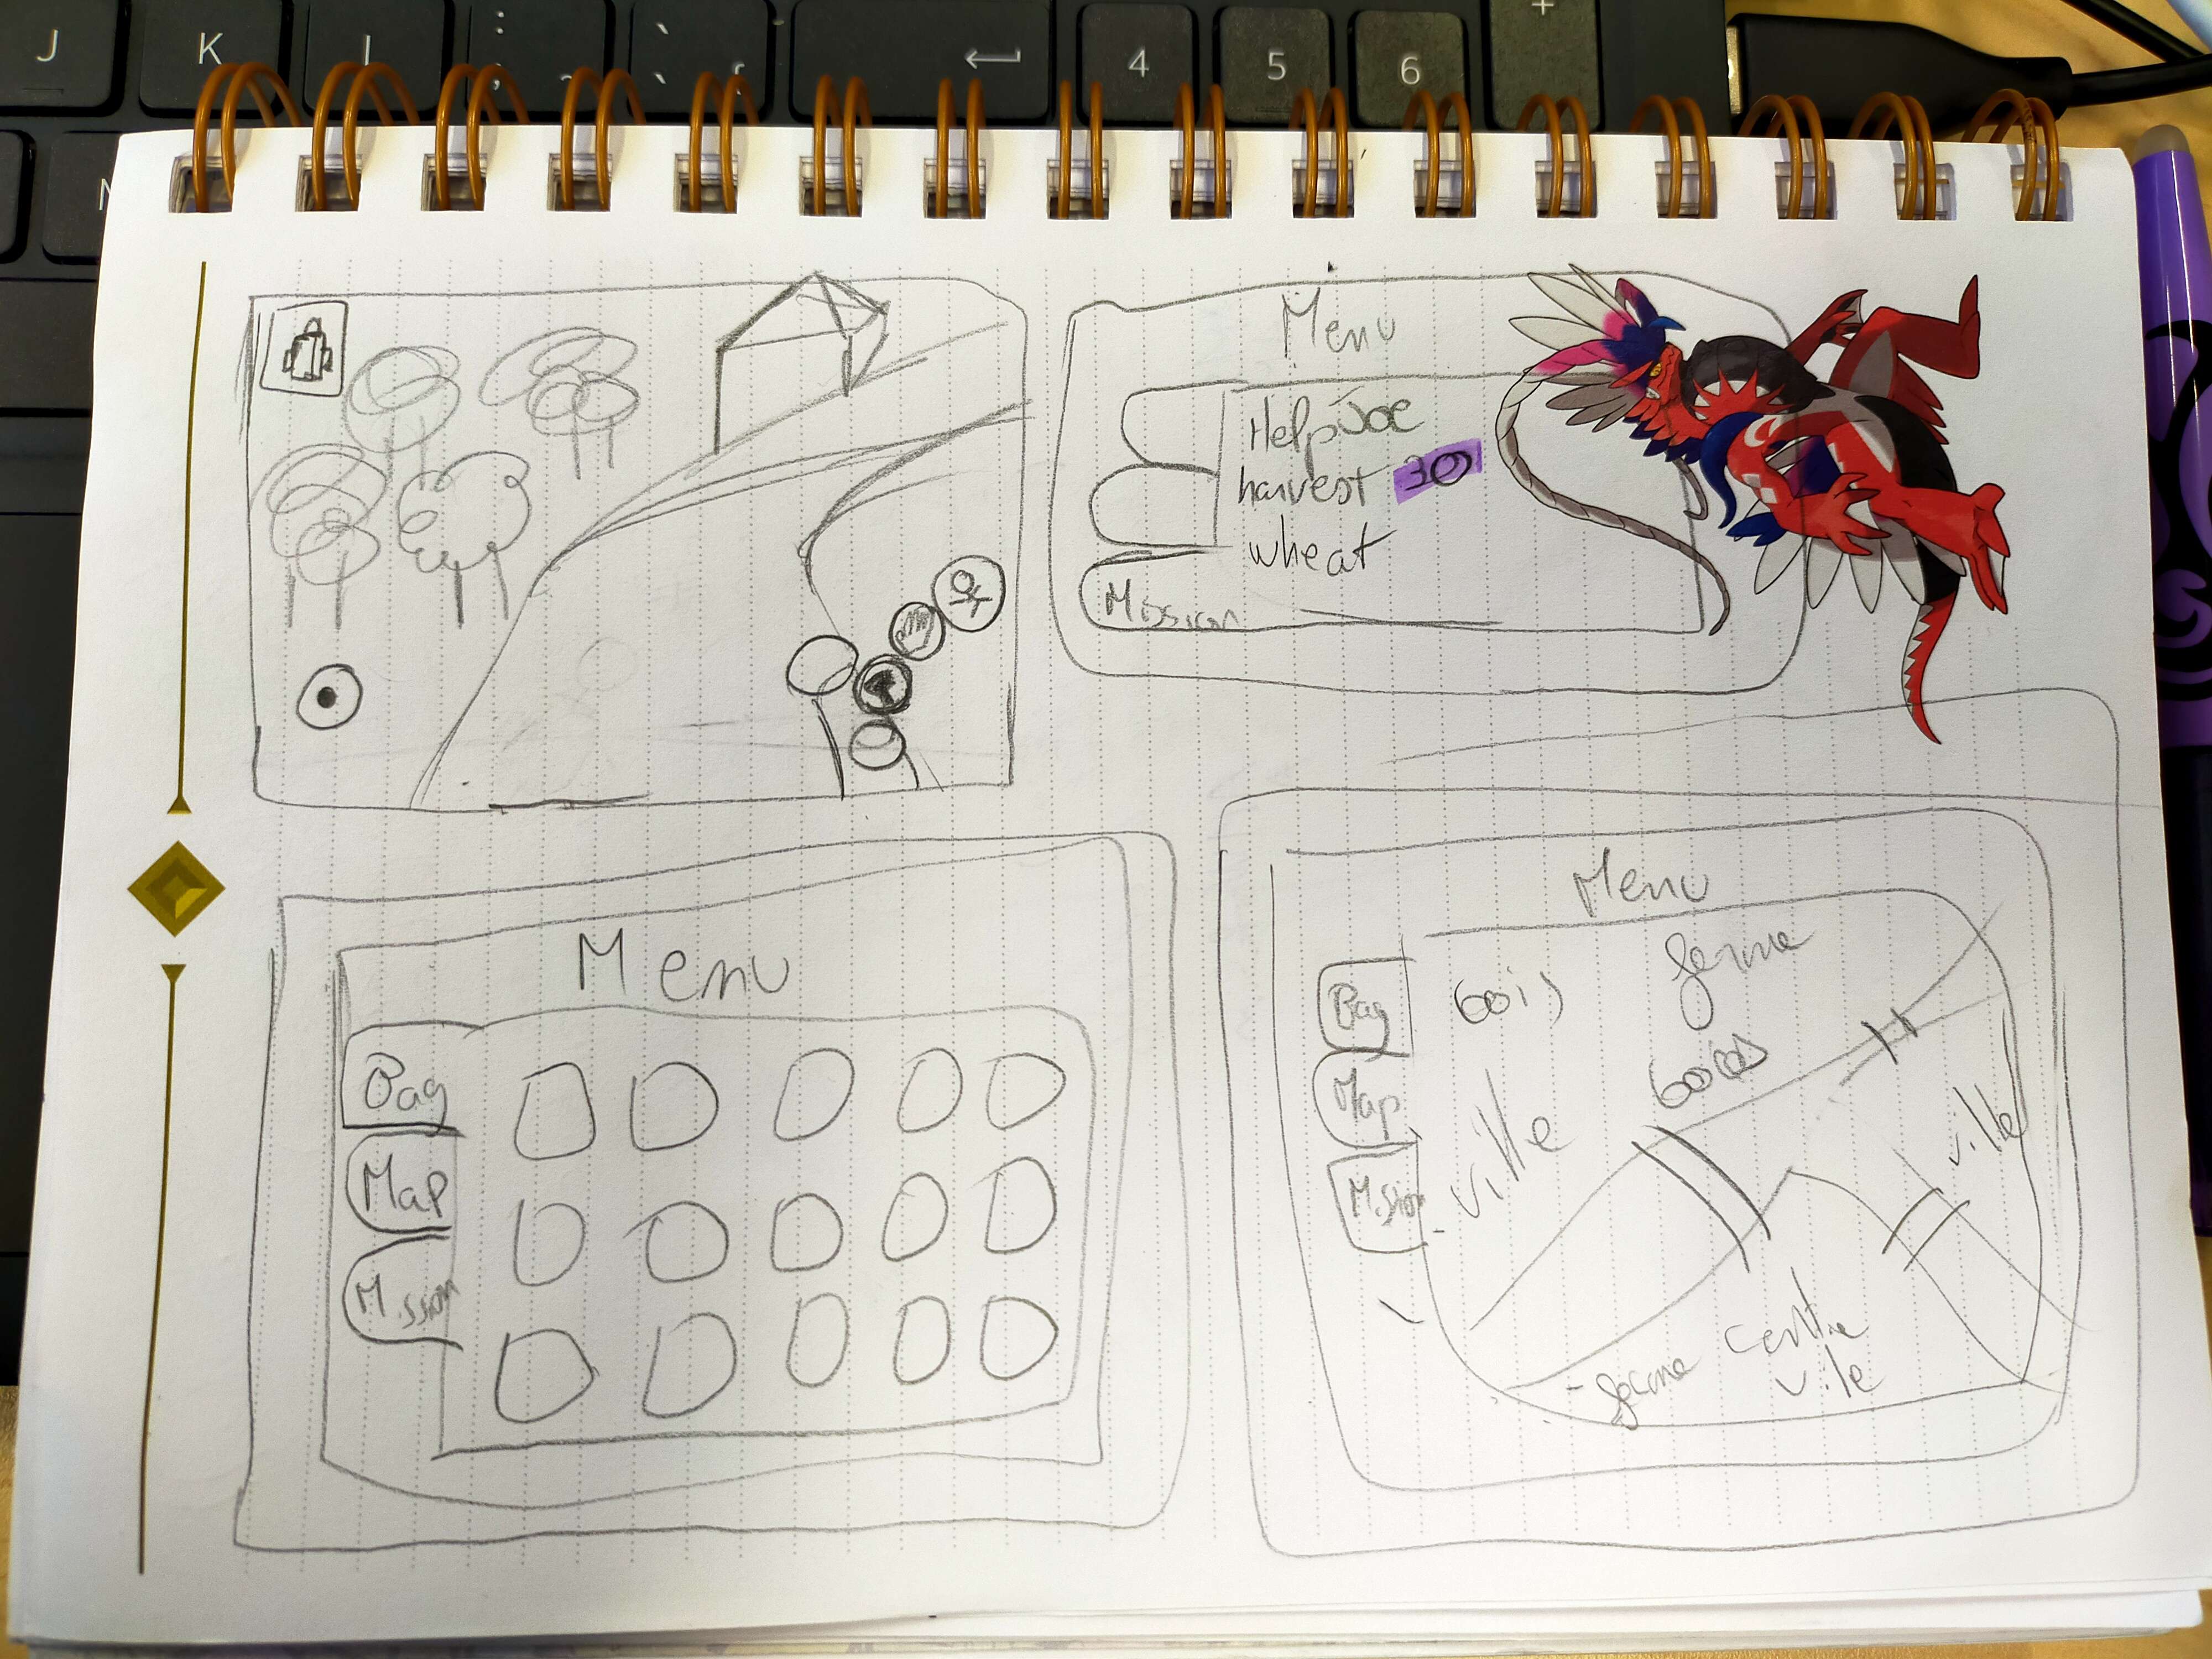 J
K
L
;
4
5
6
+
Menu
Help Joe
harvest 30
wheat
Mission
Menu
Bag
Map
Mission
Menu
Bag
Map
Mission
bois
ferme
boies
ville
ville
ferme
centre
vile